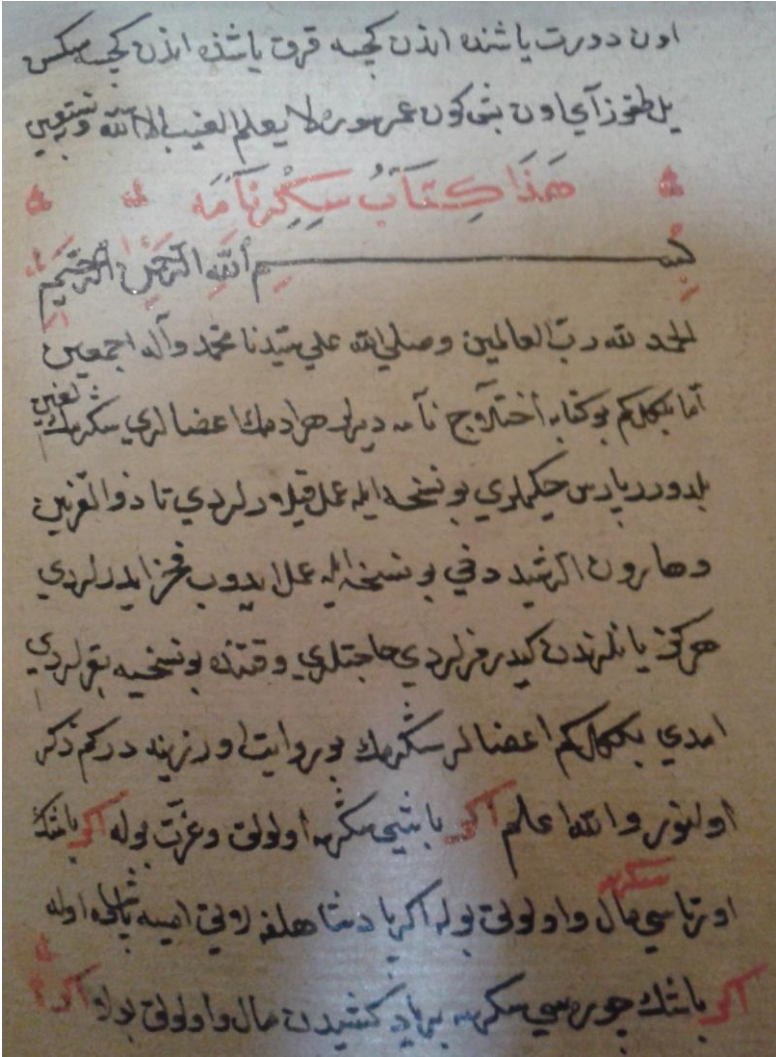 اون دورت ياشنده اندن كچسه قرق ياشنده اندن كچسه سكسن
يل طقوز آى اون بش كون عمر سوره لا يعلم الغيب الا الله نستعين
هَذَا كِتَابُ سِكِرْنَامَه
بسم الله الرحمن الرحيم
الحمد لله رب العالمين وصلي الله علي سيدنا محمد وآله اجمعين
اما بلكل كم بو كتابه اختلاج نامه ديرلر هر ادمك اعضالري سكرمك
بلدورر پارس حكملري بو نسخه ايله عمل قيلورلردي تا ذو القرنين
وهارون الرشيد دخي بو نسخه ايله عمل ايدوب فخر ايدرلردي
هركز يانلرندن كيدرمزلردي حاجتلري وقتنده بو نسخيه بقرلردي
امدي بلكل كم اعضالر سكرمك بو روايت اوزرينه دركم ذكر
اولنور والله اعلم اكر باشي سكرسه اولولق وعزت بوله اكر باشك
اورتاسي سكرسه مال واولولق بوله اكر پادشاهلغه لايق ايسه پادشاه اوله
اكر باشك چوره سي سكرسه بر ياد كشيدن مال واولولق بوله اكر